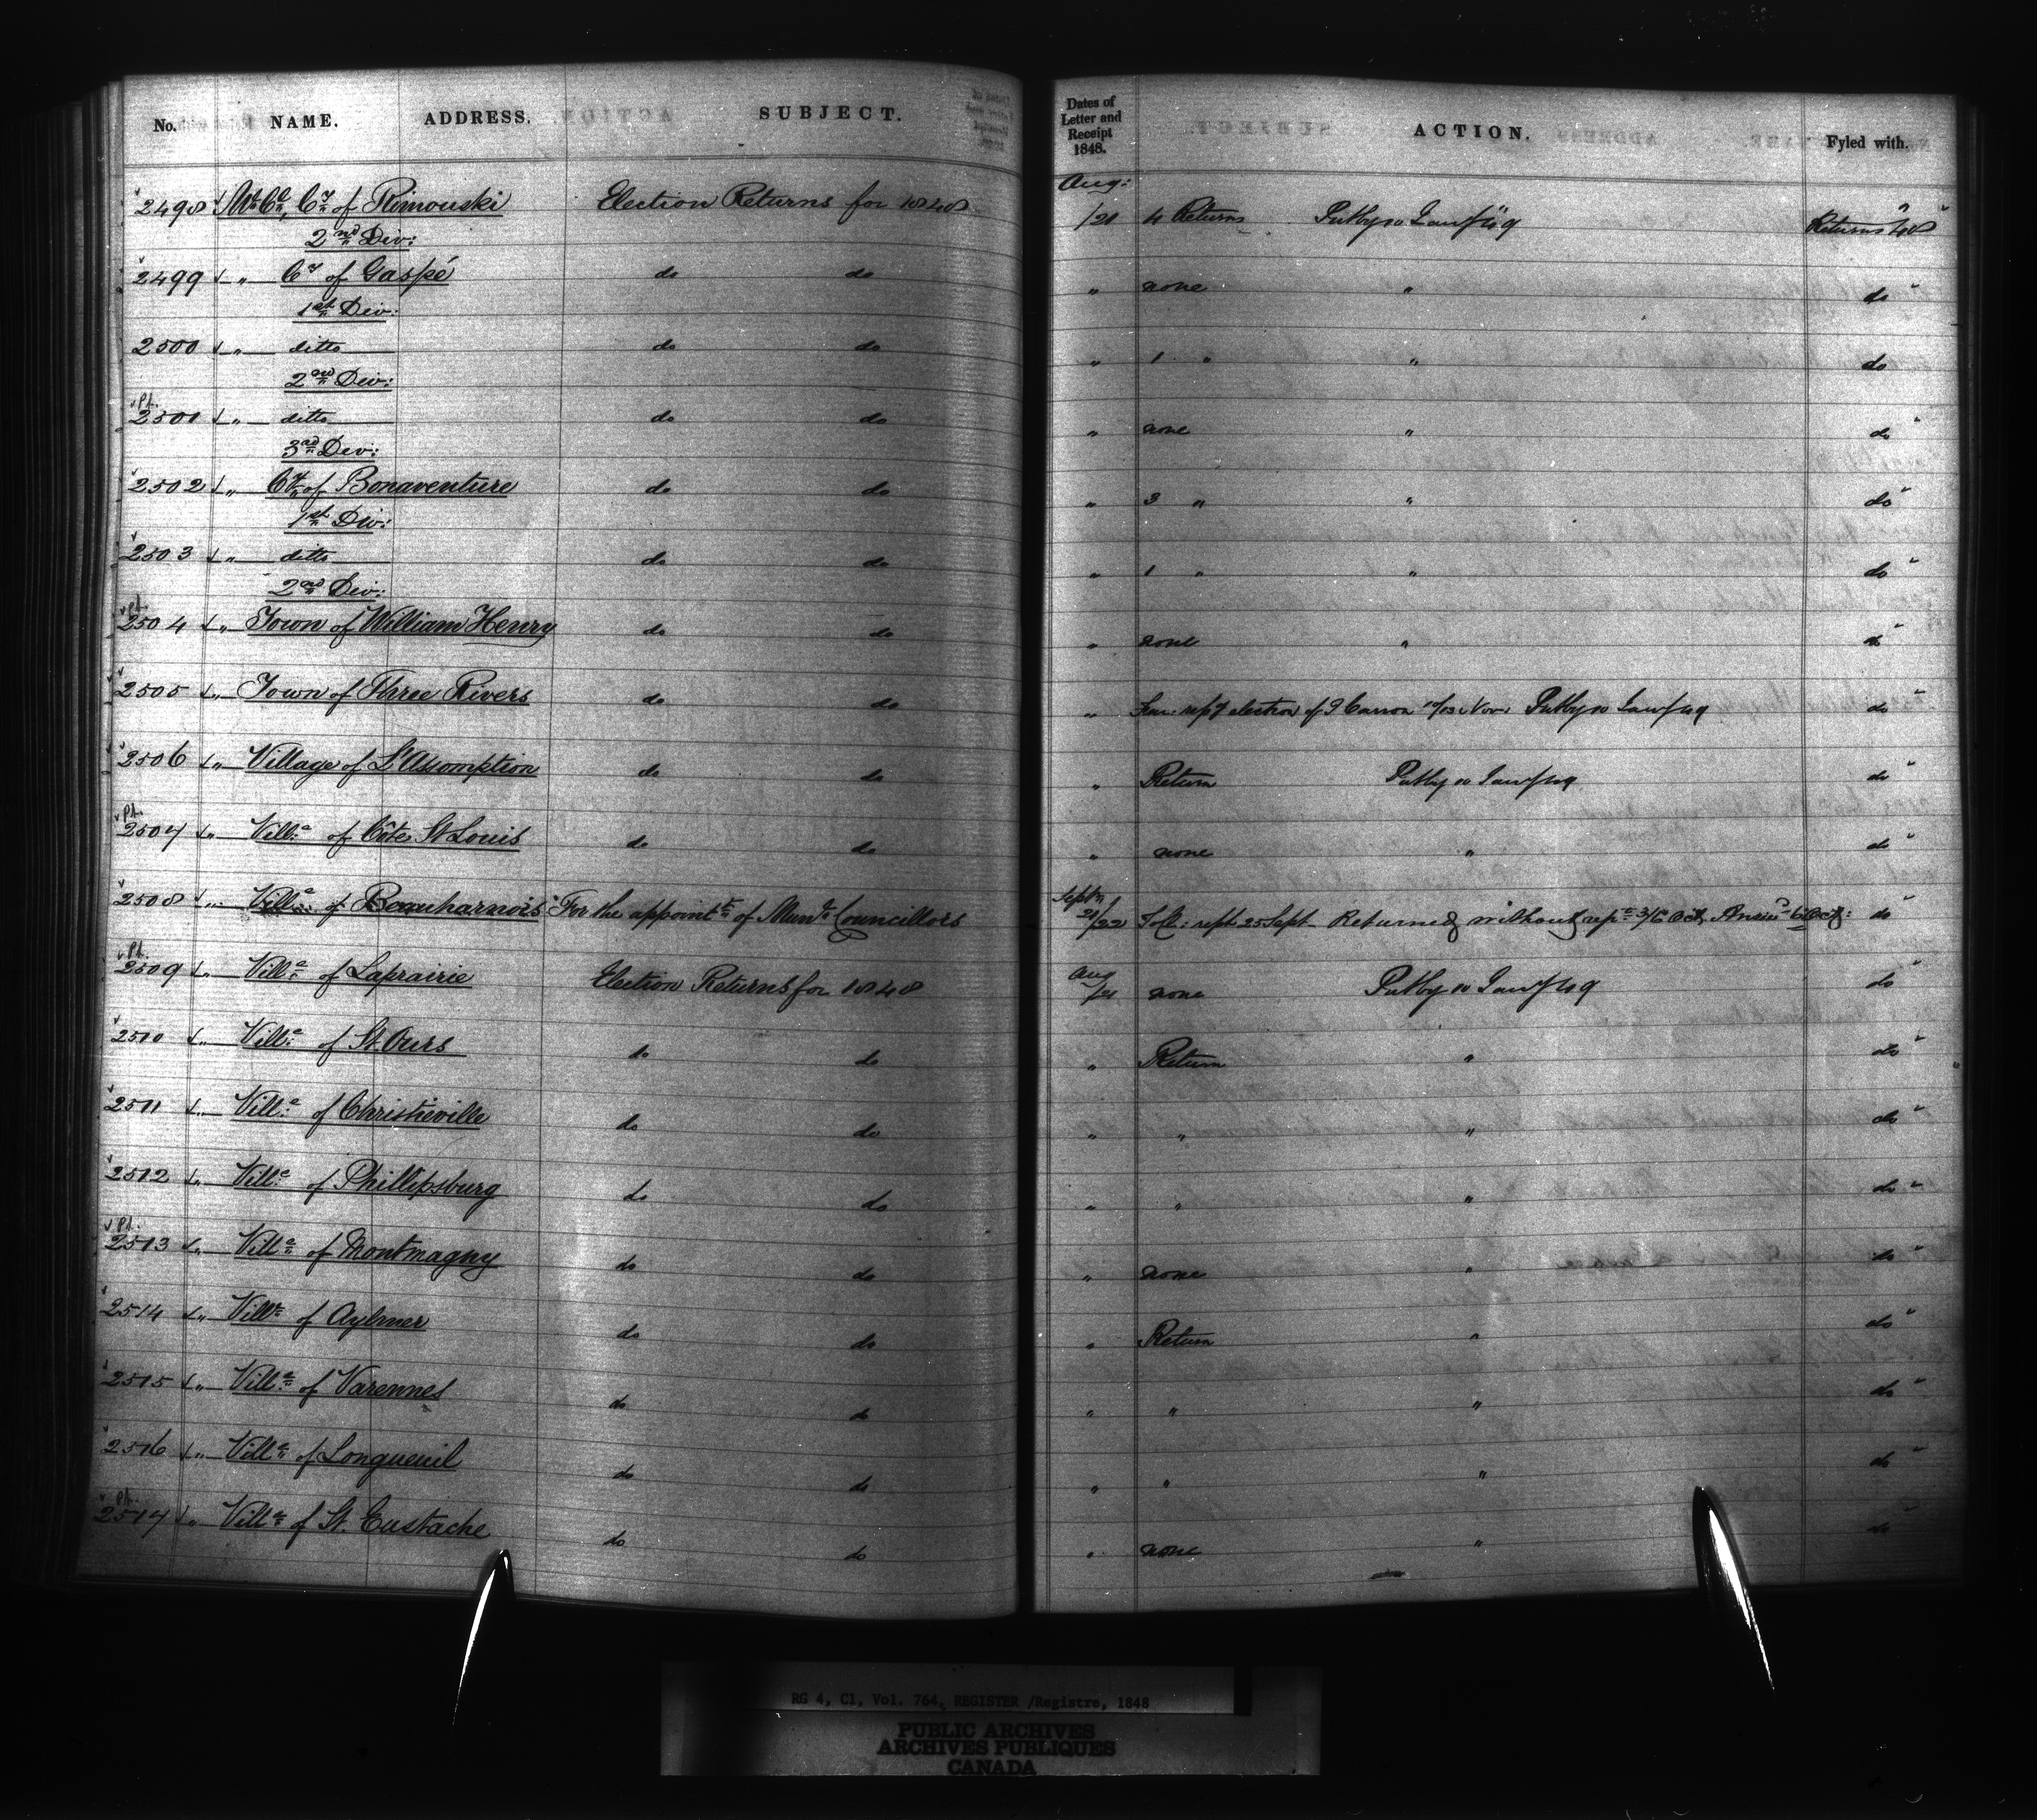 No. NAME. ADDRESS. SUBJECT. Dates of Letter and Receipt 1848. ACTION. Fyled with.
Aug:
2498 " Ml. Cl., Cy. of Rimouski Election Returns for 1848 /21 4 Returns Returns 48
2nd Div:
2499 " Cy of Gaspé do do " none " do
1st Div:
2500 " ditto do do " 1 " " do
2nd Div:
Pt.
2501 " ditto do do " none " do
3rd Div:
2502 " Cy. of Bonaventure do do " 3 " " do
1st Div:
2503 " ditto do do " 1 " " do
2nd Div:
Pt.
2504 " Town of William Henry do do " none " do
2505 " Town of Three Rivers do do " election of Nov: do
2506 " Village of L'Assomption do do " Return do
Pt.
2507 " Ville of Côte St Louis do do " none " do
2508 " Ville of Beauharnois For the appointt of Munl. Councillors Septr 21/22 25 Sept Returned without Oct: do
Pt.
2509 " Ville of Laprairie Election Returns for 1848 Aug /21 none do
2510 " Ville of St. Ours do do " Return " do
2511 " Ville of Christieville do do " " " do
2512 " Ville of Phillipsburg do do " " " do
Pt.
2513 " Ville of Montmagny do do " none " do
2514 " Ville of Aylmer do do " Return " do
2515 " Ville of Varennes do do " " " do
2516 " Ville of Longueuil do do " " " do
Pt.
2517 " Ville of St. Eustache do do " none " do
RG 4, C1, Vol. 764, REGISTER /Registre, 1848
PUBLIC ARCHIVES
ARCHIVES PUBLIQUES
CANADA